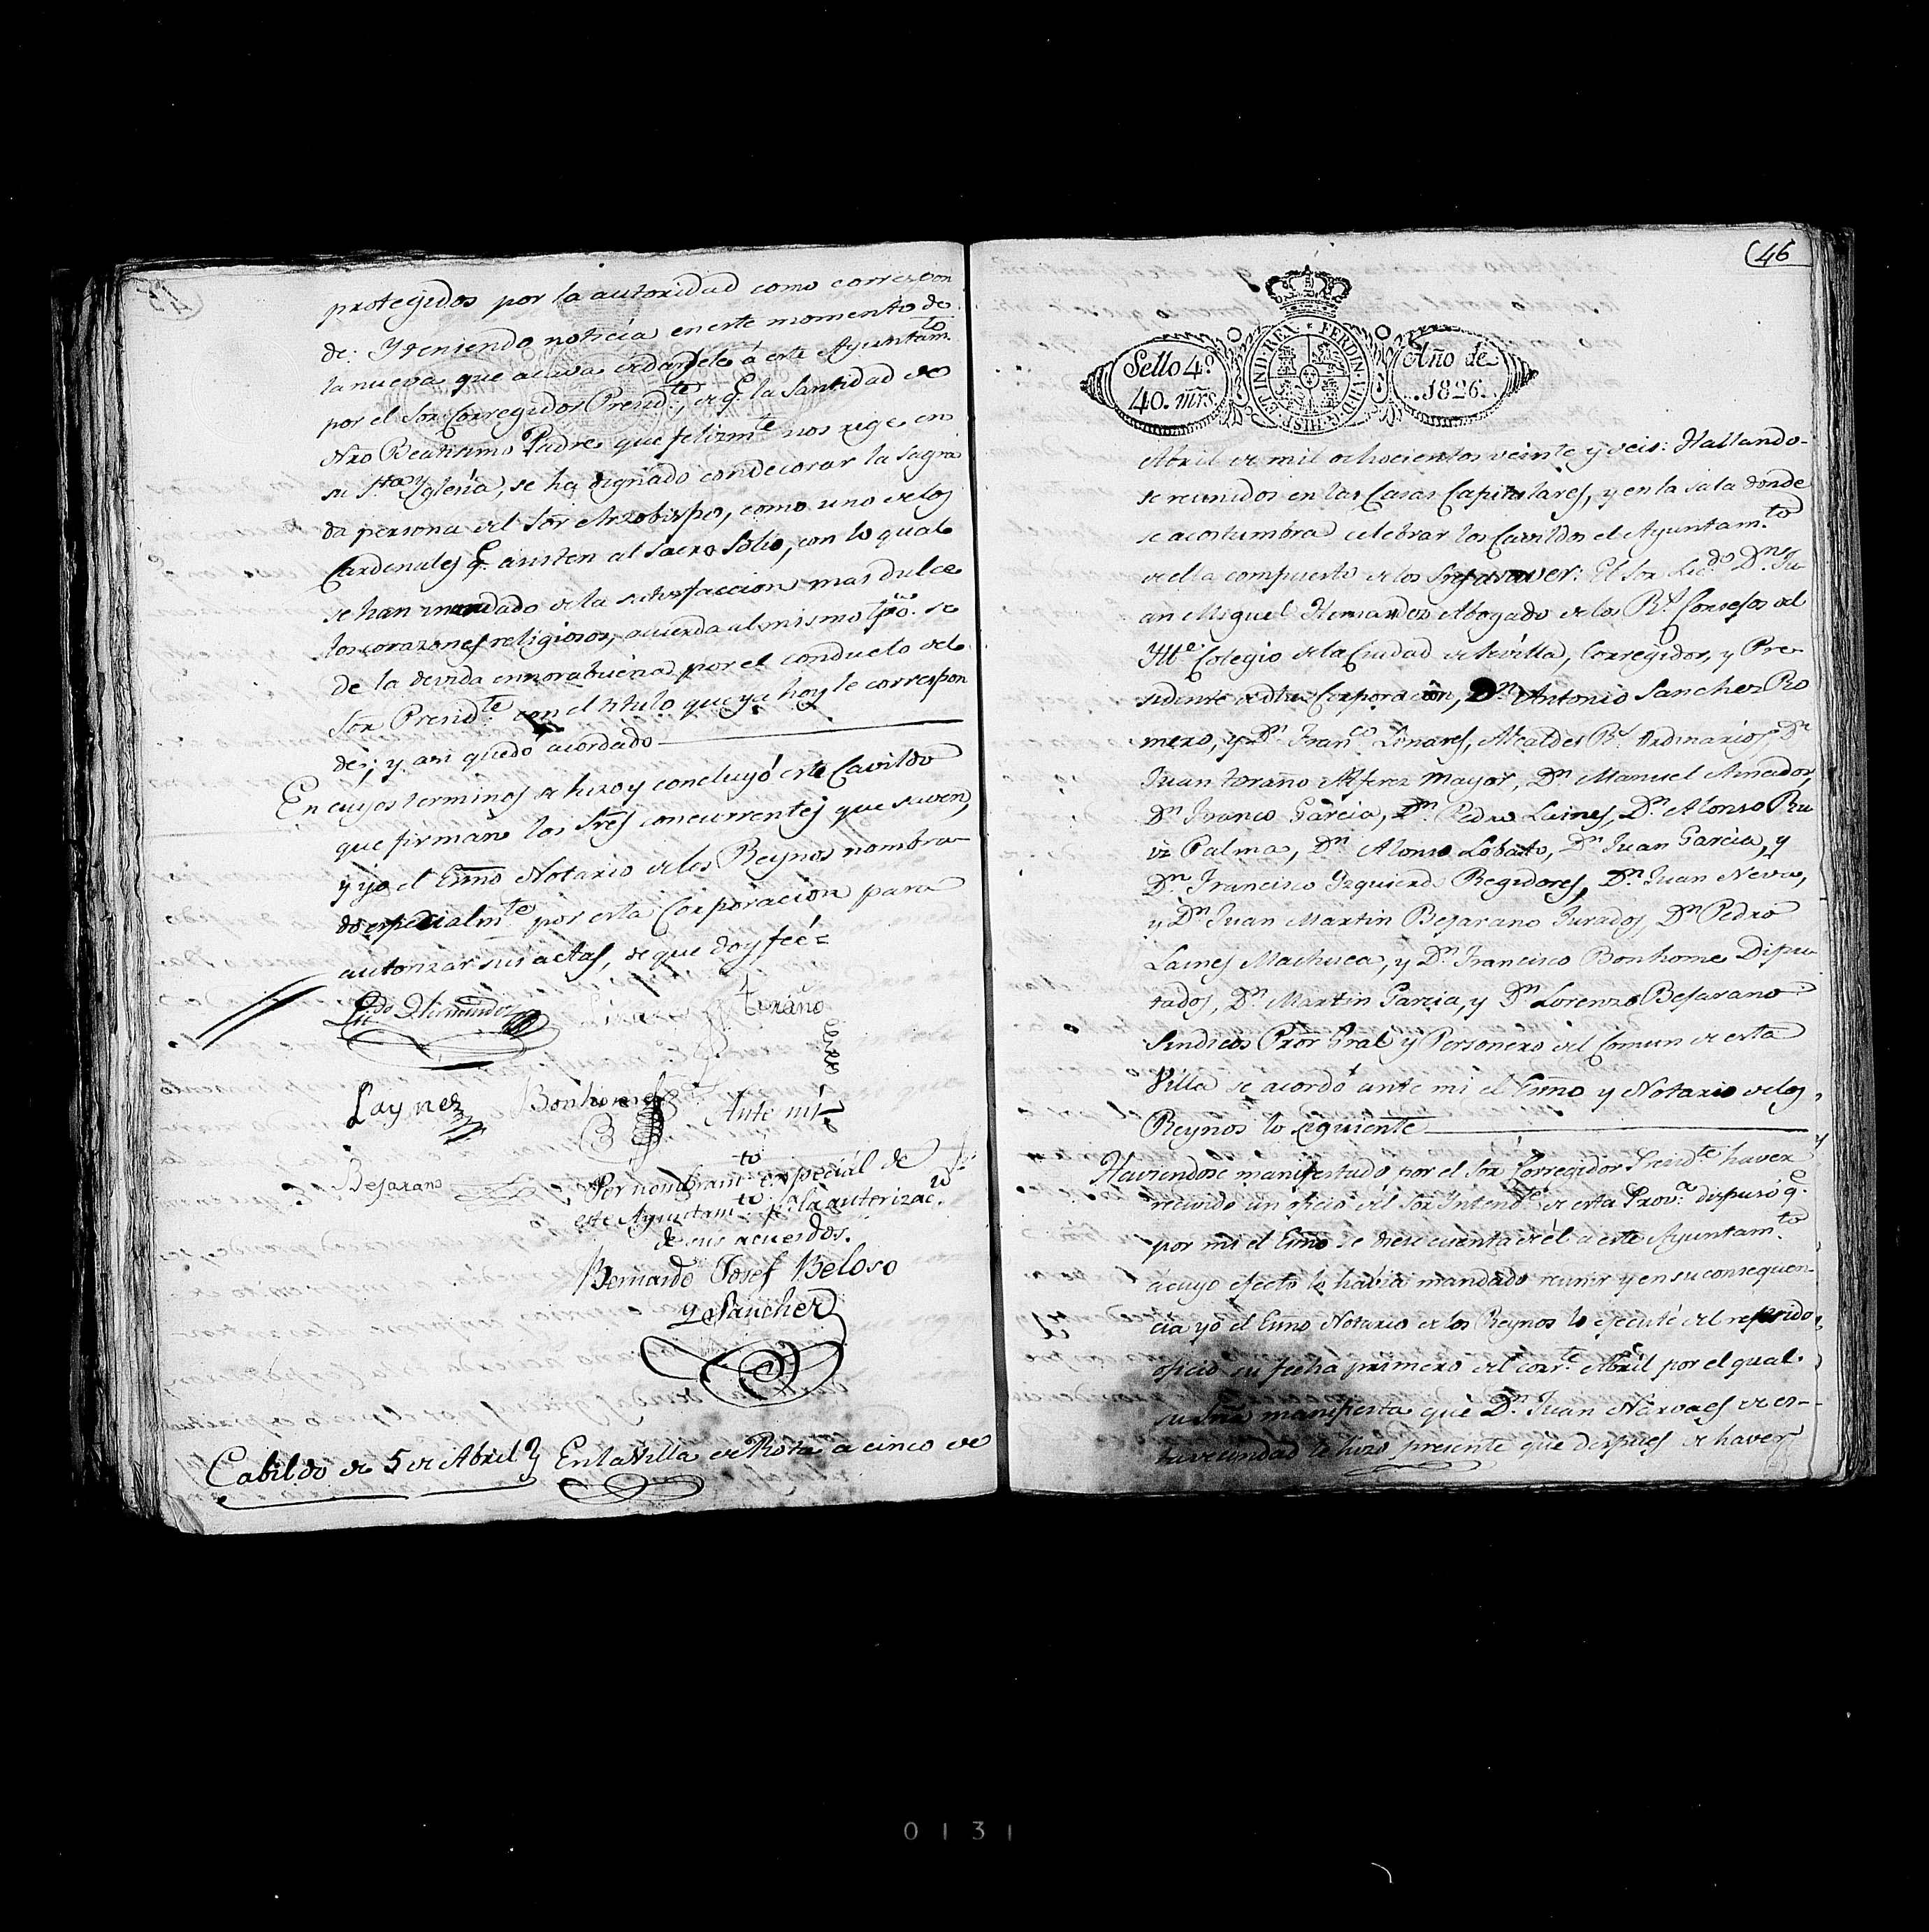 protegidos por la autoridad como correspon
de: Y teniendo noticia en este momento de
la nueva que acava de darsele á este Ayuntam.to
por el Sor. Corregidor Presid.te, de q.e la Santidad de
Ntro Beatisimo Padre que felizm.te nos rige en
su S.ta Yglesia, se ha dignado condecorar la sagra
da persona del Sor Arzobispo, como uno de los
Cardenales q.e asisten al sacro Solio, con lo qual
se han inundado de la satisfaccion mas dulce
los corazones religiosos, acuerda al mismo tpo. se
de la devida ennorabuena por el conducto del
Sor Presid.te con el titulo que ya hoy le correspon
de; y asi quedó acordado
En cuyos terminos se hizo y concluyó este Cavildo
que firman los Sres concurrentes que saven,
y yo el Esmo Notario de los Reynos nombra
do especialm.te por esta Corporacion para
autorizar sus actas, de que doy feé =
Licdo Hernandez Linares toraño
Laynez Bonhome Ante mi
Besarano
Por nombram.to especial de
este Ayuntam.to p.a la autorizac.n
de sus acuerdos.
Bernardo Josef Beloso
y Sanchez
Cabildo de 5 de Abril } En la Villa de Rota a cinco de
46
Sello 4º
40. mrs
FERDIN. VII. D. G. HISP. ET IND. REX
Año de
1826.
Abril de mil ochocientos veinte y seis: Hallando-
se reunidos en las Casas Capitulares, y en la sala donde
se acostumbra celebrar los Cavildos el Ayuntam.to
de ella compuesto de los Sres a saver: El Sor Lic.do D.n Ju
an Miguel Hernandez Abogado de los R.s Consejos del
Ill.e Colegio de la Ciudad de Sevilla, Corregidor, y Pre-
sidente de dha Corporacion, D.n Antonio Sanchez Ro
mero, y D.n Fran.co Linares, Alcaldes R.s Ordinarios D.n
Juan toraño Alferez mayor, D.n Manuel Amador,
D.n Franco Garcia, D.n Pedro Laines, D.n Alonso Ru
iz Palma, D.n Alonso Lobatto, D.n Juan Garcia, y
D.n Francisco Izquierdo Regidores, D.n Juan Neva,
y D.n Juan Martin Besarano Jurados, D.n Pedro
Laines Machuca, y D.n Francisco Bonhome Dipu
tados, D.n Martin Garcia, y D.n Lorenzo Besarano
Sindicos Pror Gral y Personero del Comun de esta
Villa se acordó ante mi el Esmo y Notario de los
Reynos lo siguiente
Haviendose manifestado por el Sor Corregidor Presid.te haver
recivido un oficio del Sor Intend.te de esta Prov.a dispuso q.e
por mi el Esmo se diese cuenta de él a este Ayuntam.to
á cuyo efecto lo havia mandado reunir y en su consequen-
cia yo el Esmo Notario de los Reynos lo ejecuté del referido
oficio su fecha primero del corr.te Abril por el qual
su Sria manifiesta que D.n Juan Narvaes de es-
ta vecindad le hizo presente que despues de haver
0131